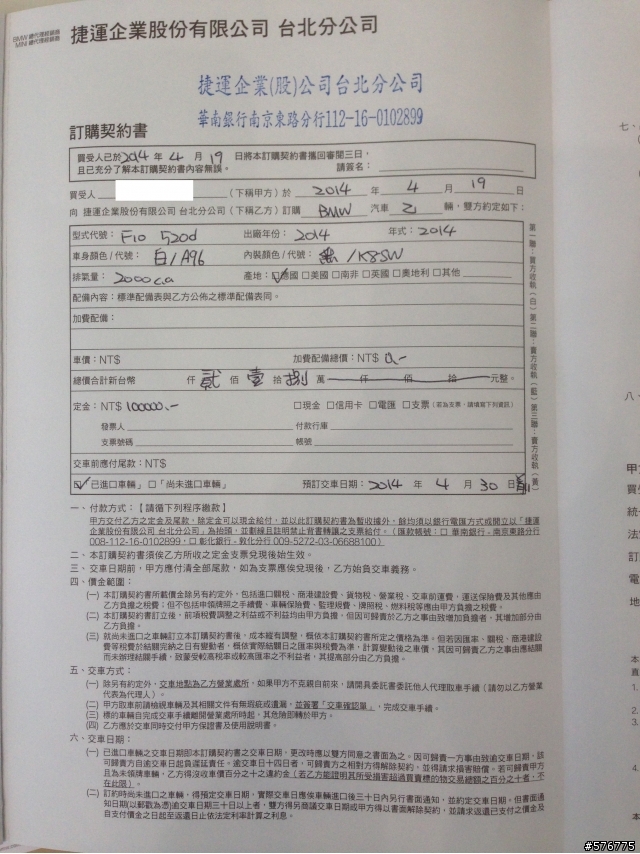 BMW 總代理經銷商
MINI 總代理經銷商
捷運企業股份有限公司 台北分公司
捷運企業(股)公司台北分公司
華南銀行南京東路分行112-16-0102899
訂購契約書
買受人已於2014年4月19日將本訂購契約書攜回審閱三日，
且已充分了解本訂購契約書內容無誤。 請簽名：
買受人 （下稱甲方）於 2014 年 4 月 19 日
向 捷運企業股份有限公司 台北分公司（下稱乙方）訂購 BMW 汽車 乙 輛，雙方約定如下：
型式代號：F10 520d 出廠年份：2014 年式：2014
車身顏色／代號：白/A96 內裝顏色／代號：/K8SW
排氣量：2000c.c 產地：☑德國 □美國 □南非 □英國 □奧地利 □其他
配備內容：標準配備表與乙方公佈之標準配備表同。
加費配備：
車價：NT$ 加費配備總價：NT$ 0.-
總價合計新台幣 仟 貳 佰 壹 拾 捌 萬 仟 佰 拾 元整。
定金：NT$ 100000.- □現金 □信用卡 □電匯 □支票（若為支票，請填寫下列資訊）
發票人 付款行庫
支票號碼 帳號
交車前應付尾款：NT$
☑已進口車輛 □「尚未進口車輛」 預訂交車日期：2014 年 4 月 30 日前
第一聯：賣方收執（白）第二聯：賣方收執（藍）第三聯：買方收執（黃）
一、付款方式：【請循下列程序繳款】
甲方交付乙方之定金及尾款，除定金可以現金給付，並以此訂購契約書為暫收據外，餘均須以銀行電匯方式或開立以「捷
運企業股份有限公司 台北分公司」為抬頭，並劃線且註明禁止背書轉讓之支票給付。（匯款帳號：□ 華南銀行 - 南京東路分行
008-112-16-0102899，□ 彰化銀行 - 敦化分行 009-5272-03-06688100）
二、本訂購契約書須俟乙方所收之定金支票兌現後始生效。
三、交車日期前，甲方應付清全部尾款，如為支票應俟兌現後，乙方始負交車義務。
四、價金範圍：
(一) 本訂購契約書所載價金除另有約定外，包括進口關稅、商港建設費、貨物稅、營業稅、交車前運費、運送保險費及其他應由
乙方負擔之稅費；但不包括申領牌照之手續費、車輛保險費、監理規費、牌照稅、燃料稅等應由甲方負擔之稅費。
(二) 本訂購契約書訂立後，前項稅費調整之利益或不利益均由甲方負擔，但因可歸責於乙方之事由致增加負擔者，其增加部分由
乙方負擔。
(三) 就尚未進口之車輛訂立本訂購契約書後，成本縱有調整，概依本訂購契約書所定之價格為準。但若因匯率、關稅、商港建設
費等稅費於結關完納之日有變動者，概依實際結關日之匯率與稅費為準，計算變動後之車價，其因可歸責乙方之事由應結關
而未辦理結關手續，致蒙受較高稅率或較高匯率之不利益者，其提高部分由乙方負擔。
五、交車方式：
(一) 除另有約定外，交車地點為乙方營業處所，如果甲方不克親自前來，請開具委託書委託他人代理取車手續（請勿以乙方營業
代表為代理人）。
(二) 甲方取車前請檢視車輛及其相關文件有無瑕疵或遺漏，並簽署「交車確認單」，完成交車手續。
(三) 標的車輛自完成交車手續離開營業處所時起，其危險即轉於甲方。
(四) 乙方應於交車同時交付甲方保證書及使用說明書。
六、交車日期：
(一) 已進口車輛之交車日期即本訂購契約書之交車日期，更改時應以雙方同意之書面為之。因可歸責一方事由致逾交車日期，該
可歸責方自逾交車日起負遲延責任。逾交車日十四日者，可歸責方之相對方得解除契約，並得請求損害賠償。若可歸責甲方
且為未領牌車輛，乙方得沒收車價百分之十之違約金（若乙方能證明其所受損害超過買賣標的物交易總額之百分之十者，不
在此限）。
(二) 訂約時尚未進口之車輛，得預定交車日期，實際交車日應俟車輛進口後三十日內另行書面通知，並約定交車日期。但書面通
知日期(以郵戳為憑)逾交車日期三十日以上者，雙方得另商議交車日期或甲方得以書面解除契約，並請求返還已支付之價金及
自支付價金之日起至返還日止依法定利率計算之利息。
七、
八、
甲
買
統
法
訂
電
地
本
1.
2.
3.
#576775